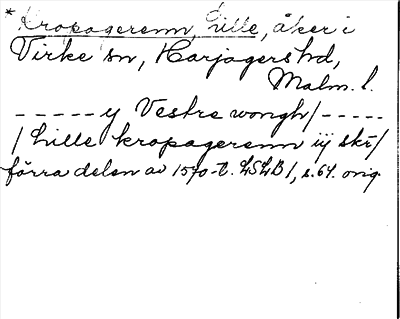 *Kropagerenn, Lille, åker i
Virke sn, Harjagers hd,
Malm. l.
- - - - - y Vestre wongh/- - - - -
/Lille kropagerenn iij skr/
förra delen av 1570-t. LSLB 1, s. 64. orig.